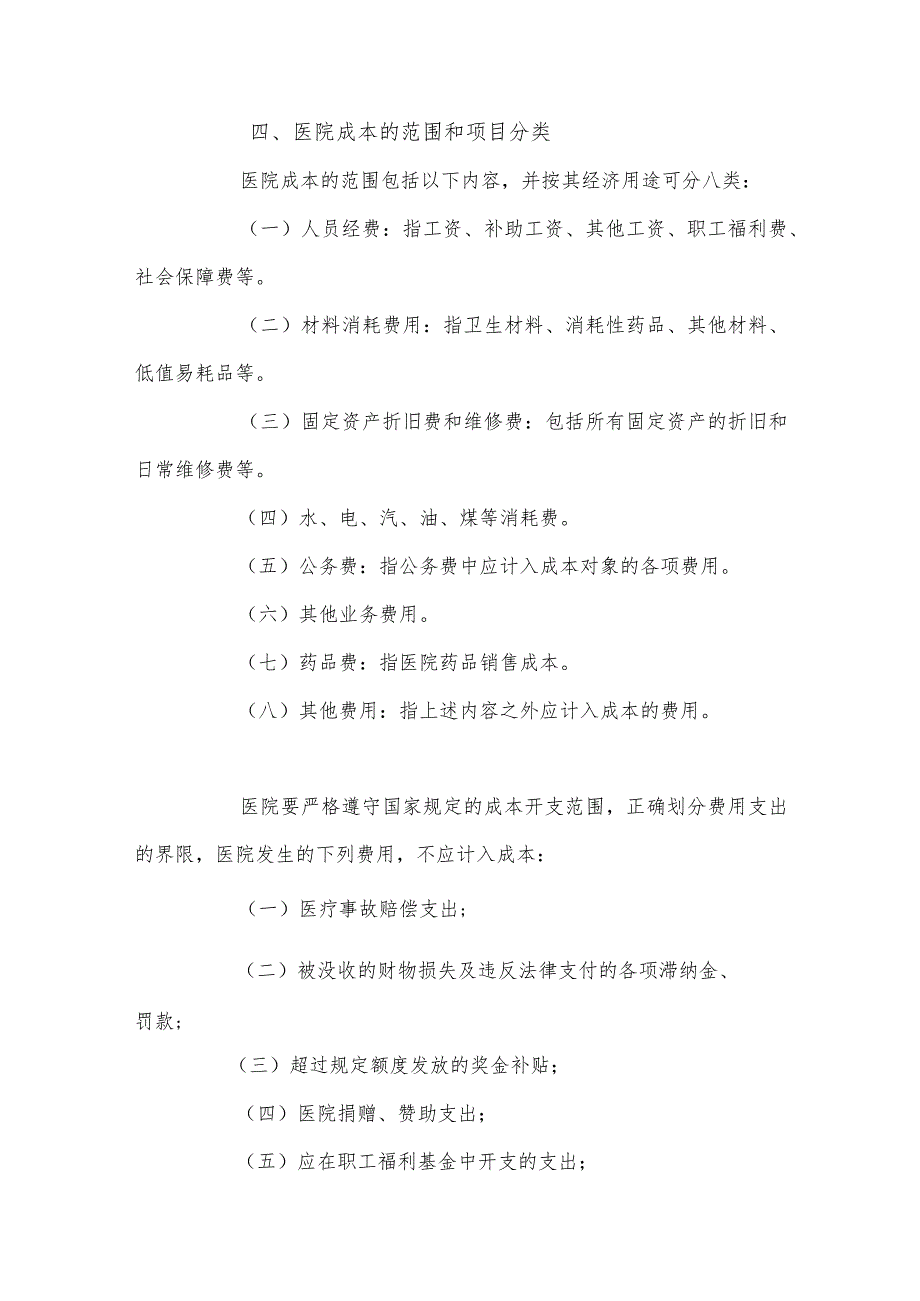 四、医院成本的范围和项目分类
医院成本的范围包括以下内容，并按其经济用途可分八类：
（一）人员经费：指工资、补助工资、其他工资、职工福利费、
社会保障费等。
（二）材料消耗费用：指卫生材料、消耗性药品、其他材料、
低值易耗品等。
（三）固定资产折旧费和维修费：包括所有固定资产的折旧和
日常维修费等。
（四）水、电、汽、油、煤等消耗费。
（五）公务费：指公务费中应计入成本对象的各项费用。
（六）其他业务费用。
（七）药品费：指医院药品销售成本。
（八）其他费用：指上述内容之外应计入成本的费用。
医院要严格遵守国家规定的成本开支范围，正确划分费用支出
的界限，医院发生的下列费用，不应计入成本：
（一）医疗事故赔偿支出；
（二）被没收的财物损失及违反法律支付的各项滞纳金、
罚款；
（三）超过规定额度发放的奖金补贴；
（四）医院捐赠、赞助支出；
（五）应在职工福利基金中开支的支出；